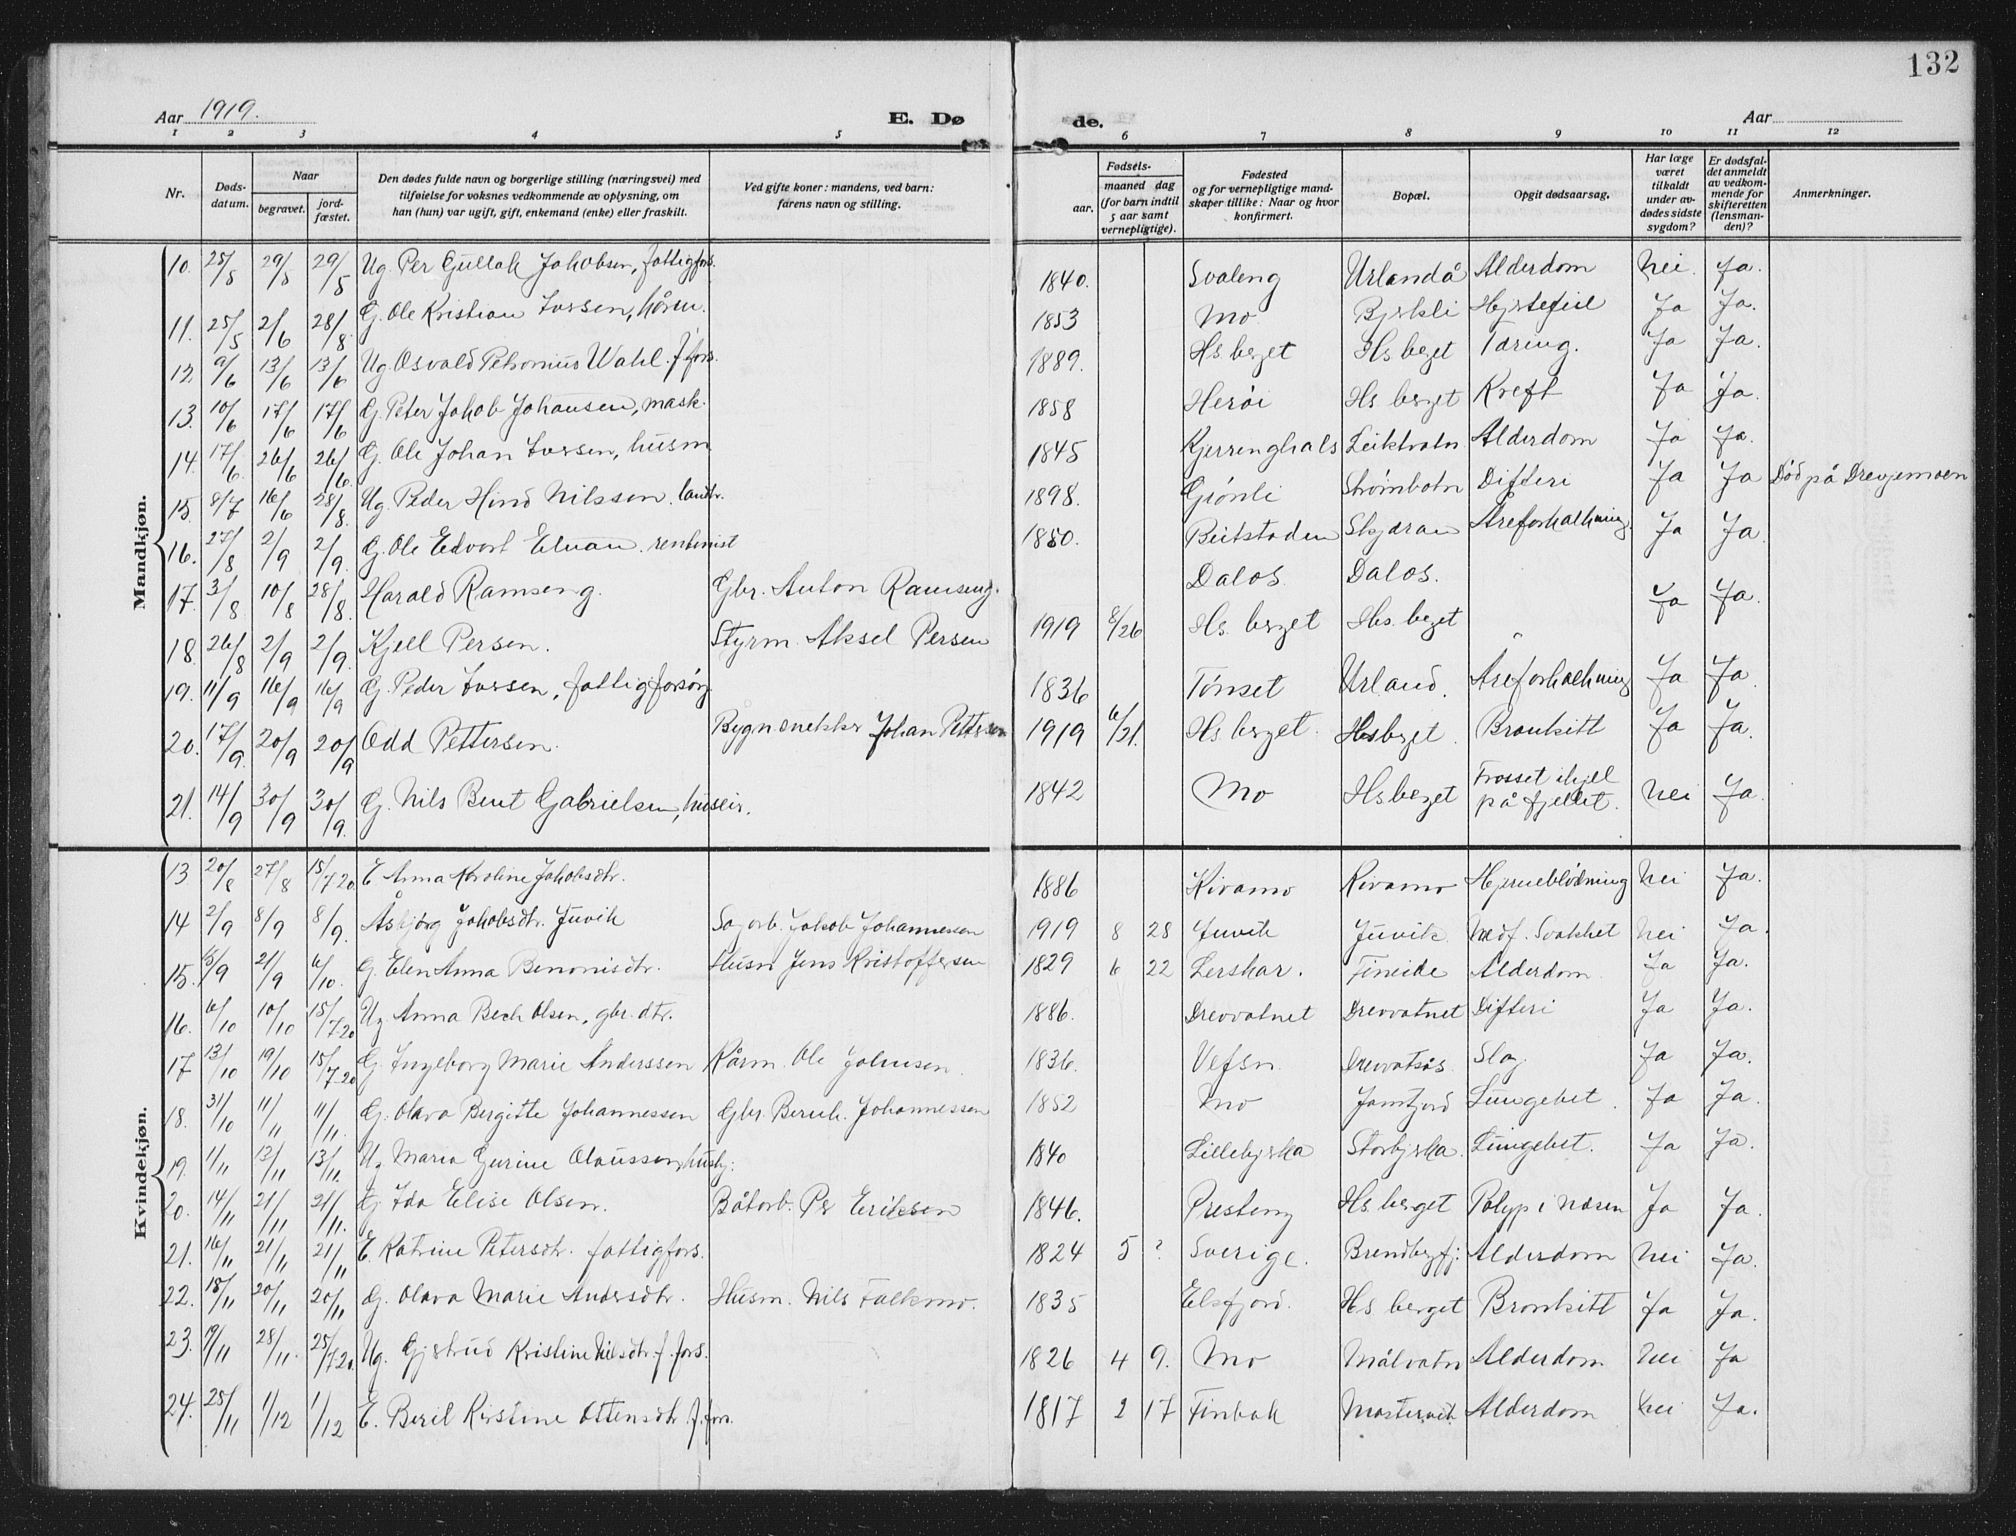 132
Aar 1919. E. Dø de. Aar
1 2 3 4 5 6 7 8 9 10 11 12
Nr. Døds-datum. Naar begravet. jord-fæstet. Den dødes fulde navn og borgerlige stilling (næringsvei) med tilføielse for voksnes vedkommende av oplysning, om han (hun) var ugift, gift, enkemand (enke) eller fraskilt. Ved gifte koner: mandens, ved barn: farens navn og stilling. Fødsels- aar. maaned dag (for barn indtil 5 aar samt vernepligtige). Fødested og for vernepligtige mand-skaper tillike: Naar og hvor konfirmert. Bopæl. Opgit dødsaarsag. Har læge været tilkaldt under av-dødes sidste sygdom? Er dødsfal-det anmeldt av vedkom-mende for skifteretten (lensman-den)? Anmerkninger.
Mandkjøn.
10. 25/5 29/5 29/5 Ug. Per Gullak Jakobsen, fattigfors. 1840. Svaleng Urlandå Alderdom Nei. Ja.
11. 25/5 2/6 28/8. G. Ole Kristian Iversen, kårm. 1853 Mo Bjerkli Hjertefeil Ja Ja.
12 9/6 13/6 13/6 Ug. Osvald Petronius Wahl. f. fors. 1889. Hs berget Hs berget Tæring. Ja Ja.
13. 10/6 17/6 17/6 G. Peter Jakob Johansen, mask. 1858 Herøi Hs berget Kreft Ja Ja.
14. 17/6. 26/6 26/6. G. Ole Johan Iversen, husm 1845 Kjerringhals Leiktvatn Alderdom Ja Ja.
15. 8/7 16/6 28/8. Ug. Peder Hind Nilssen. landv. 1898. Grønli Strømbotn Difteri Ja Ja Død på Drevjemoen
16. 27/8 2/9 2/9. G. Ole Edvart Elnan. rentenist 1850. Beitstaden Skjæran Åreforkalkning. Ja Ja.
17. 3/8 10/8 28/8. Harald Ramseng. Gbr. Anton Ramseng. Dalos. Dalos. Ja Ja.
18. 26/8 2/9 2/9. Kjell Persen. Styrm. Aksel Persen 1919 8/26 Hs. berget Hs. berget "
19. 11/9 16/9 16/9 G. Peder Iversen, fattigforsørg. 1836 Tønset Urland. Åreforkalkning Ja Ja.
20. 17/9. 20/9 20/9 Odd Pettersen. Bygn snekker Johan Pettersen 1919 6/21. Hs berget. Hsberget. Bronkitt Ja Ja.
21. 14/9 30/9 30/9. G. Nils Bent Gabrielsen, huseir. 1842 Mo Hsberget Frosset ihjel på fjellet. Nei Ja.
Kvindekjøn.
13 20/8 27/8 15/7 20. E Anna Karoline Jakobsdtr. 1886 Kivamo Kivamo Hjerneblødning Nei Ja.
14 2/9 8/9 8/9. Åsbjørg Jakobsdtr. Juvik Sagarb. Jakob Johannessen 1919 8 28 Juvik Juvik. Medf. Svakhet Nei Ja.
15. 15/9 21/9 6/10. G. Elen Anna Benonisdtr. Husm Jens Kristoffersen 1829 6 22 Lerskar. Fineide Alderdom Ja Ja.
16. 6/10 10/10 15/7 20 Ug Anna Bech Olsen, gbr. dtr. 1886. Drevvatnet Drevvatnet Difteri Ja Ja.
17 13/10 19/10 15/7 20 G. Ingeborg Marie Anderssen Kårm. Ole Johnsen. 1836. Vefsn Drevvatsøs Slag Ja Ja.
18. 31/10 11/11 11/11. G. Olava Bergitte Johannessen Gbr. Bernh. Johannessen 1852 Mo Jamtjord Lungebet. Ja Ja.
19. 1/11 13/11 13/11. Ug Maria Gurine Olaussen, husbj. 1840 Lillebjerka Storbjerka. Lungebet. Ja Ja.
20. 14/11 21/11 21/11. G. Ida Elise Olsen. Båtarb. Per Eriksen 1846. Presteng Hs berget Polyp i næsen Ja Ja.
21. 16/11 21/11 21/11 E. Katrine Petersdtr. fattigfors. 1824 5 ? Sverige. Brendbergfj. Alderdom Nei Ja.
22. 18/11 20/11 20/11 G. Olava Marie Andersdtr. Husm. Nils Falkmo. 1835 Elsfjord. Hs berget Bronkitt Ja Ja.
23. 19/11 28/11. 25/7 20. Ug. Gjertrud Kristine Nilsdtr. f. fors. 1826 4 9. Mo Målvatn Alderdom. Nei Ja
24. 25/11 1/12 1/12 E. Beril Kerstine Ottensdtr. f. fors. 1817 2 17 Finbak Mastervik. Alderdom Nei Ja.